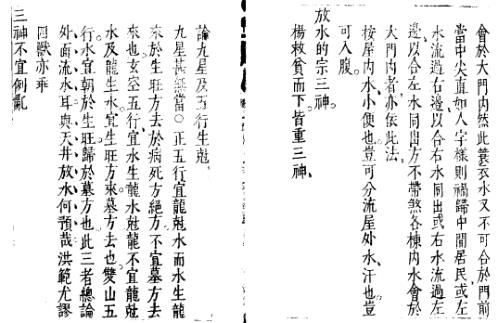 會於大門內然此簑衣水又不可合於門前
當中尖直如人字樣則禍歸中間居民或左
水流過右邊以合右水同出或右水流過左
邊以合左水同出方不帶煞各棟內水會於
大門內者亦依此法
按屋內水小便也豈可分流屋外水汗也豈
可入腹
放水的宗三神
楊救貧而下皆重三神
論九星及五行生尅
九星甚無當○正五行宜龍尅水而水生龍
來於生旺方去於病死方絕方不宜墓方去
來也玄空五行宜水生龍水尅龍不宜龍尅
水及龍生水宜生旺方來墓方去也雙山五
行水宜朝於生旺歸於墓方也此三者總論
外面流水耳與天井放水何預哉洪範尤謬
三神不宜倒亂